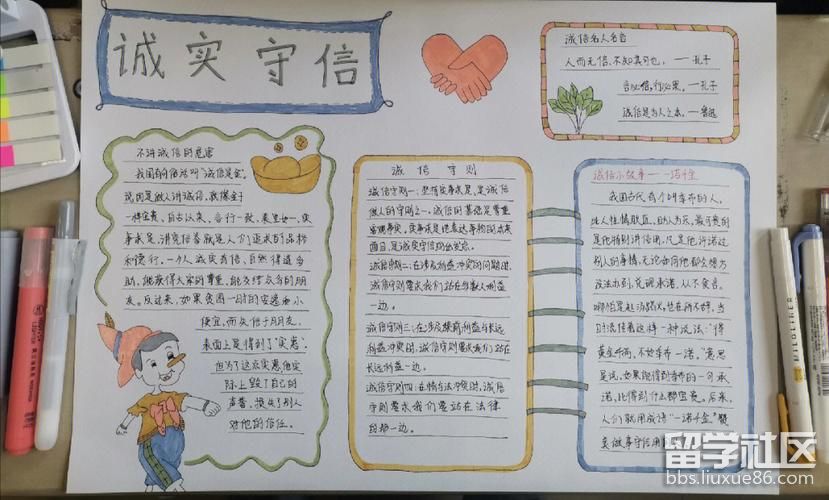 诚实守信
诚信名人名言
人而无信,不知其可也。——孔子
言必信,行必果。——孔子
诚信是为人之本。——鲁迅
不讲诚信的危害
我国有句俗话叫"诚信是金",
说的是做人讲诚信,就像金子
一样金贵。自古以来,言行一致、表里如一、实
事求是、讲究信誉就是人们追求的品格
和德行。一个人诚实有信,自然得道多
助,能获得大家的尊重,能交结众多的朋
友。反过来,如果贪图一时的安逸和小
便宜,而失信于朋友,
表面上是得到了"实惠"
但为了这点实惠他实
际上毁了自己的
声誉,损失了别人
对他的信任。
诚信守则
诚信守则一:坚持实事求是,是诚信
做人的守则之一。诚信的基础是尊重
客观事实,实事求是地表达事物的本来
面目,是诚实守信的出发点。
诚信守则二:在涉及利益冲突的问题时,
诚信守则要求我们站在多数人利益
一边。
诚信守则三:在涉及眼前利益与长远
利益冲突时,诚信守则要求我们站在
长远利益一边。
诚信守则四:在情与法冲突时,诚信
守则要求我们要站在法律
的那一边。
诚信小故事——一诺千金
我国古代有个叫季布的人,
此人性情耿直,助人为乐,最可贵的
是他特别讲信用,凡是他许诺过
别人的事情,无论如何他都会想方
设法办到,兑现承诺,从不食言,
哪怕是赴汤蹈火,也在所不辞。当
时流传着这样一种说法:"得
黄金千两,不如季布一诺。"意思
是说,如果能得到季布的一句承
诺,比得到什么都宝贵。后来,
人们就用成语"一诺千金"赞
美做事守信用
留学社区
bbs.liuxue86.com